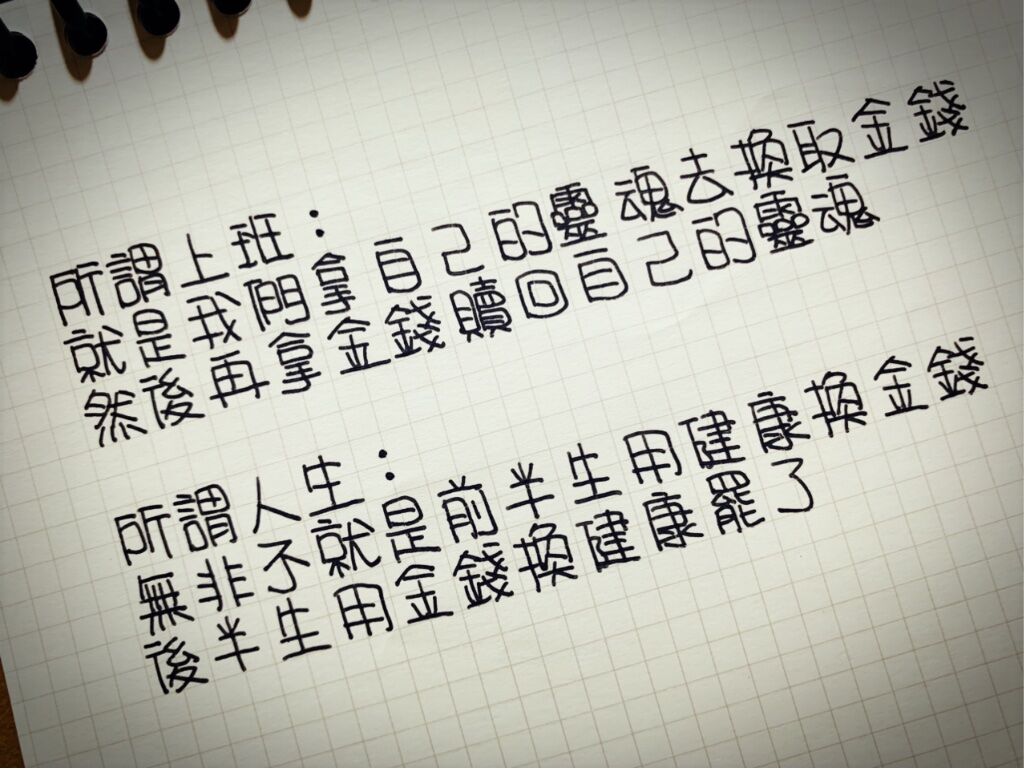 所謂上班：
就是我們拿自己的靈魂去換取金錢
然後再拿金錢贖回自己的靈魂
所謂人生：
無非不就是前半生用健康換金錢
後半生用金錢換健康罷了